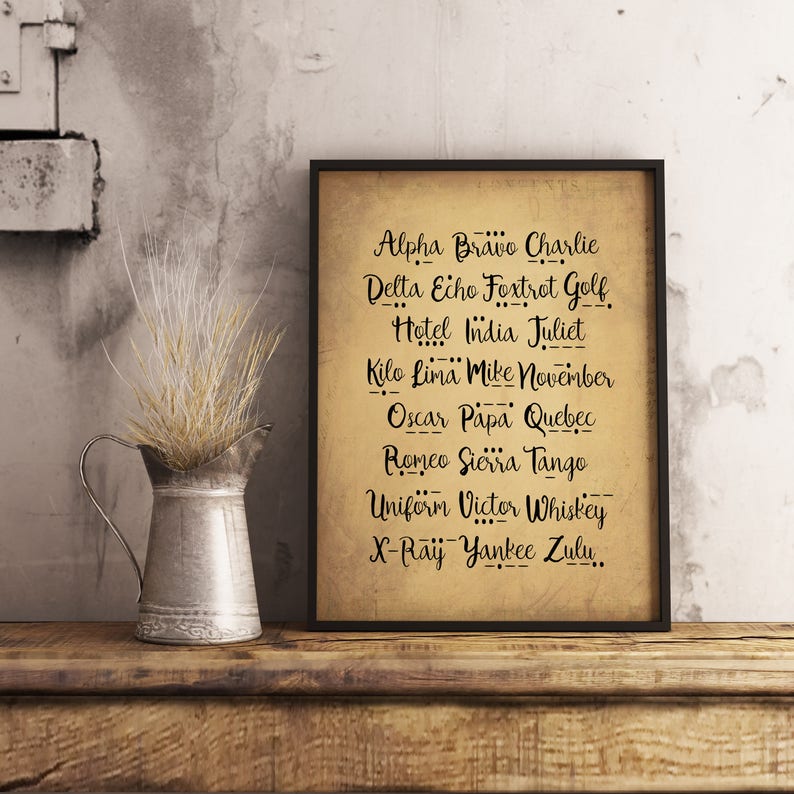 CONTENTS
Alpha Bravo Charlie
Delta Echo Foxtrot Golf
Hotel India Juliet
Kilo Lima Mike November
Oscar Papa Quebec
Romeo Sierra Tango
Uniform Victor Whiskey
X-Ray Yankee Zulu